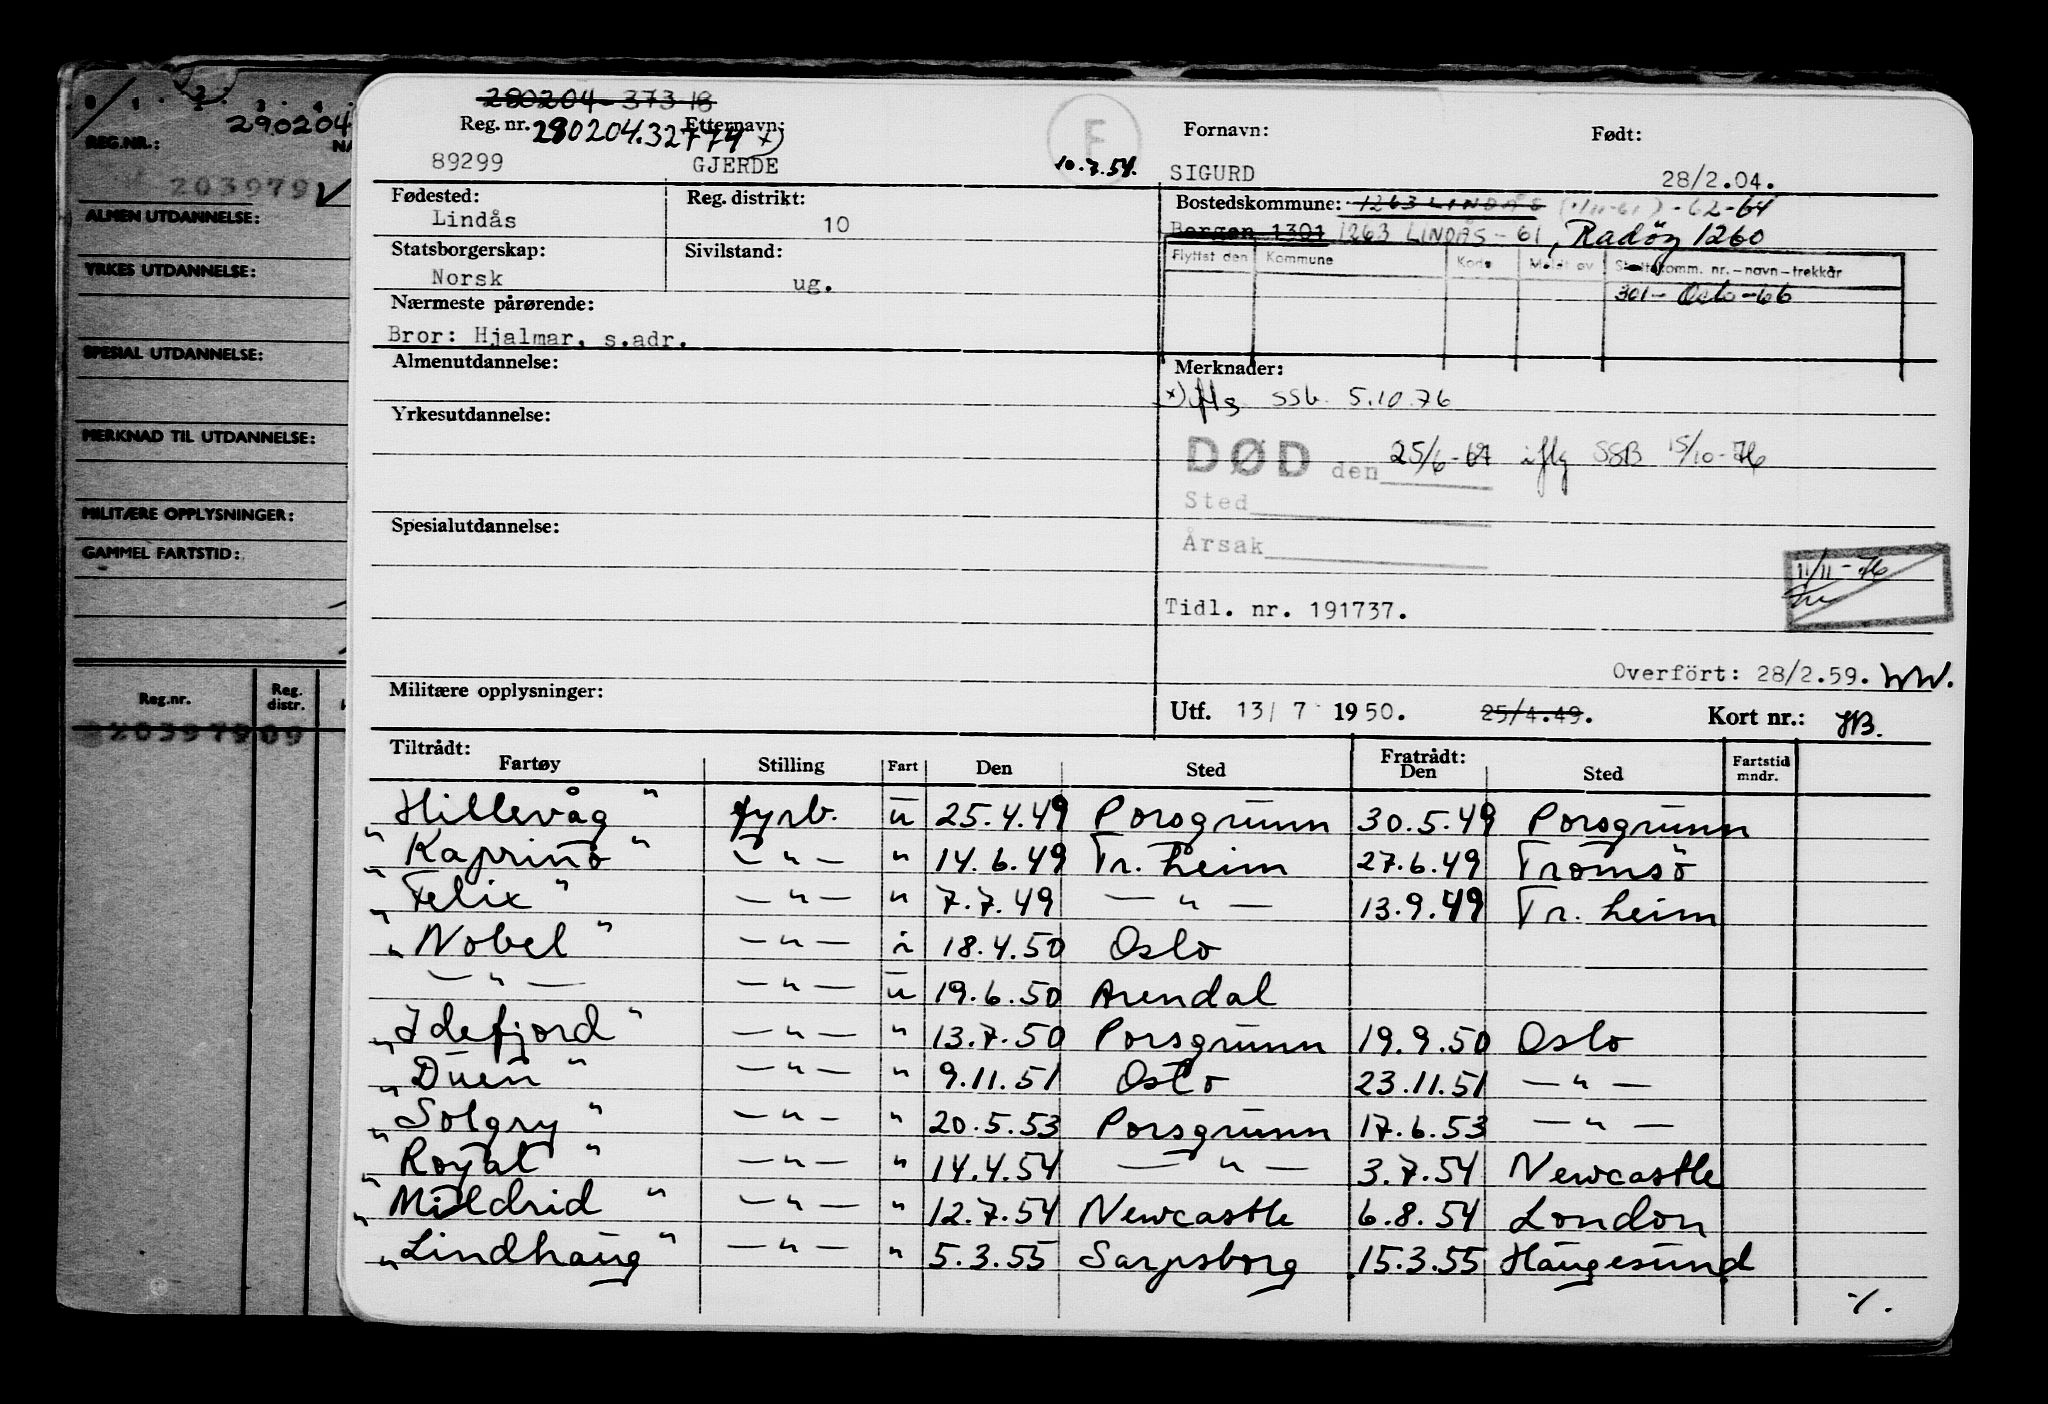 0 1 2 3 4
290204
REG.NR.:
203979
ALMEN UTDANNELSE:
YRKES UTDANNELSE:
SPESIAL UTDANNELSE:
MERKNAD TIL UTDANNELSE:
MILITÆRE OPPLYSNINGER:
GAMMEL FARTSTID:
Reg.nr. Reg. distr.
203979 09
280204-37318
Reg. nr. 280204.32779 x) Etternavn: F Fornavn: Født:
89299 GJERDE 10.7.54. SIGURD 28/2.04.
Fødested: Reg. distrikt: Bostedskommune: 1263 LINDÅS (1/11-61) - 62-64
Lindås 10 Bergen 1301 1263 LINDÅS - 61, Radöy 1260
Statsborgerskap: Sivilstand: Flyttet den Kommune Kode Meldt av Skattekomm. nr.-navn-trekkår
Norsk ug. 301- Oslo-66
Nærmeste pårørende:
Bror: Hjalmar, s.adr.
Almenutdannelse: Merknader:
x) iflg SSb. 5.10.76
Yrkesutdannelse:
DØD den 25/6-67 iflg SSB 15/10-76
Sted
Spesialutdannelse:
Årsak
11/11-76
Tidl. nr. 191737.
Overfört: 28/2.59. WW.
Militære opplysninger:
Utf. 13/ 7 1950. 25/4.49. Kort nr.: HB.
Tiltrådt: Fratrådt:
Fartøy Stilling Fart Den Sted Den Sted Fartstid mndr.
Hillevåg " fyrb. u 25.4.49 Porsgrunn 30.5.49 Porsgrunn
" Kaprino " — " — " 14.6.49 Tr. heim 27.6.49 Tromsö
" Felix " — " — " 7.7.49 — " — 13.9.49 Tr. heim
" Nobel " — " — i 18.4.50 Oslo
— " — — " — u 19.6.50 Arendal
" Idefjord " — " — " 13.7.50 Porsgrunn 19.9.50 Oslo
" Duen " — " — " 9.11.51 Oslo 23.11.51 — " —
" Solgry " — " — " 20.5.53 Porsgrunn 17.6.53 — " —
" Royal " — " — " 14.4.54 — " — 3.7.54 Newcastle
" Mildrid " — " — " 12.7.54 Newcastle 6.8.54 London
" Lindhaug " — " — " 5.3.55 Sarpsborg 15.3.55 Haugesund
-/.